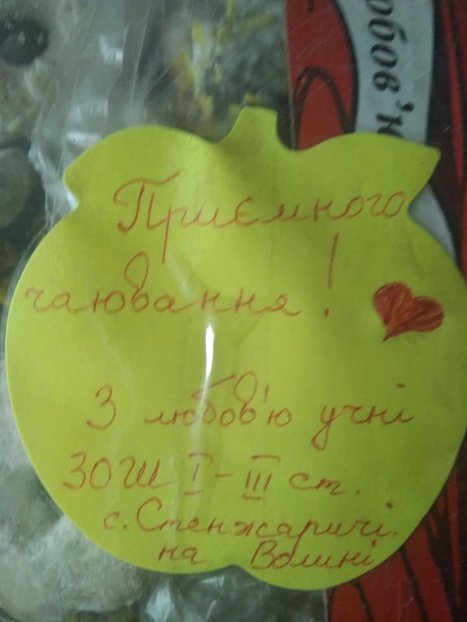 Приємного
чаювання!
З любов'ю учні
ЗОШ І-ІІІ ст.
с. Стенжаричі
на Волині